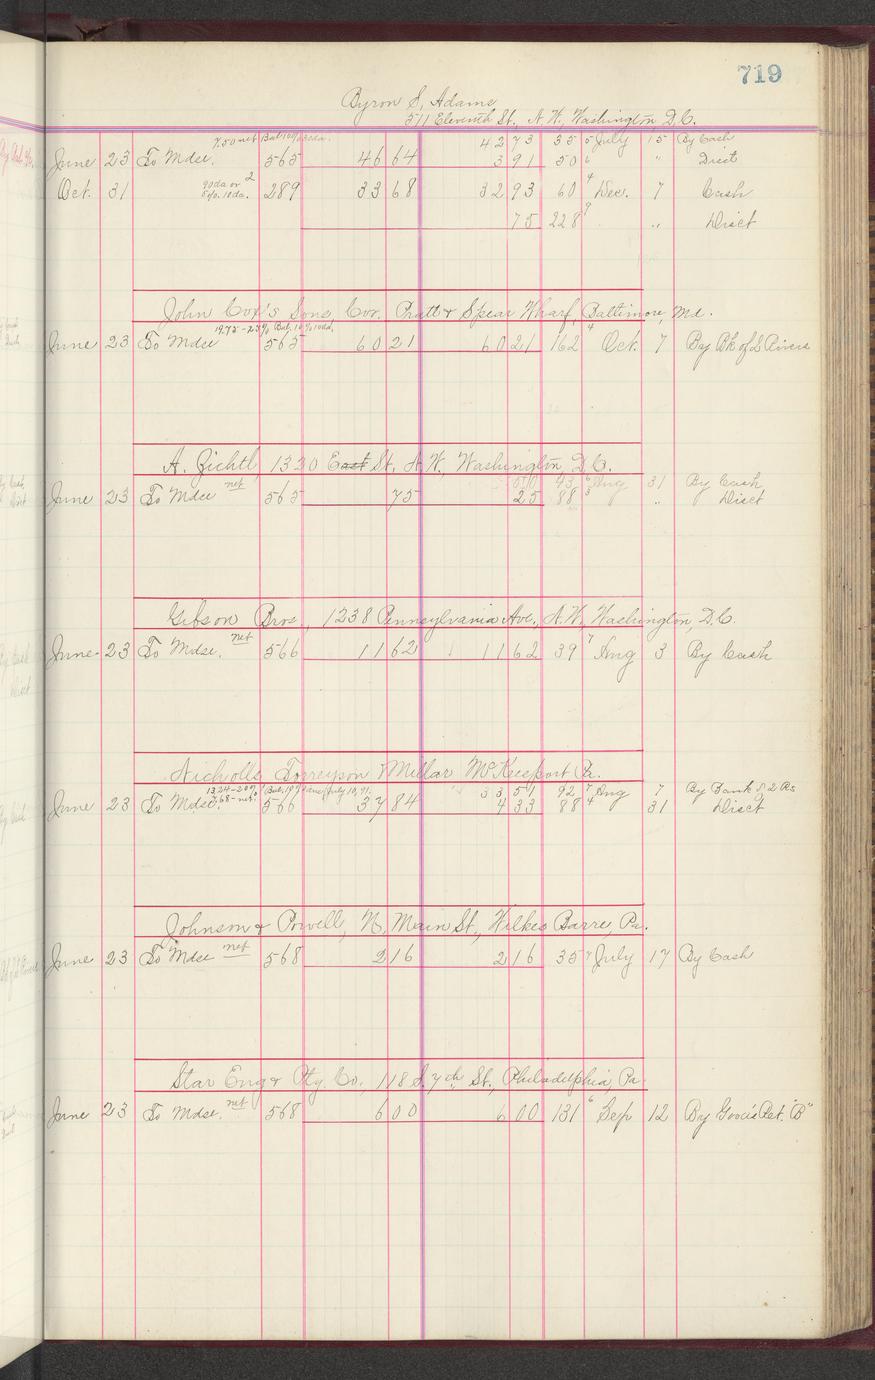 719
Byron S. Adams
511 Eleventh St., N.W., Washington, D.C.
7.50 net Bal. 10% 30 da. 42 73 35 5 July 15 By Cash
June 23 To Mdse. 565 46 64 3 91 50 6 " Disct
Oct. 31 90 da or 2 5% 10 da. 289 33 68 32 93 60 4 Dec. 7 Cash
75 228 9 " Disct
John Cox's Sons, Cor. Pratt & Spear Wharf, Baltimore, Md.
19.75-25% Bal. 10% 10 da.
June 23 To Mdse 565 60 21 60 21 162 4 Oct. 7 By Bk of 2 Rivers
A. Zichtl, 1330 East St., N.W., Washington, D.C.
50 43 6 Aug 31 By Cash
June 23 To Mdse net 565 75 25 88 3 " Disct
Gibson Bros., 1238 Pennsylvania Ave., N.W., Washington, D.C.
June 23 To Mdse. net 566 11 62 11 62 39 7 Aug 3 By Cash
Nicholls Torreyson & Millar McKeesport Pa.
13.24-20% Bal. 10% July 10, 91. 33 51 92 7 Aug 7 By Bank of 2 Rs
June 23 To Mdse. 7.68-net. 566 37 84 4 33 88 4 31 Disct
Johnson & Powell, N. Main St., Wilkes Barre, Pa.
June 23 To Mdse net 568 2 16 2 16 35 7 July 17 By Cash
Star Eng & Ptg. Co., 118 S. 7th St., Philadelphia, Pa.
June 23 To Mdse. net 568 6 00 6 00 131 6 Sep 12 By Goods Ret. "B"